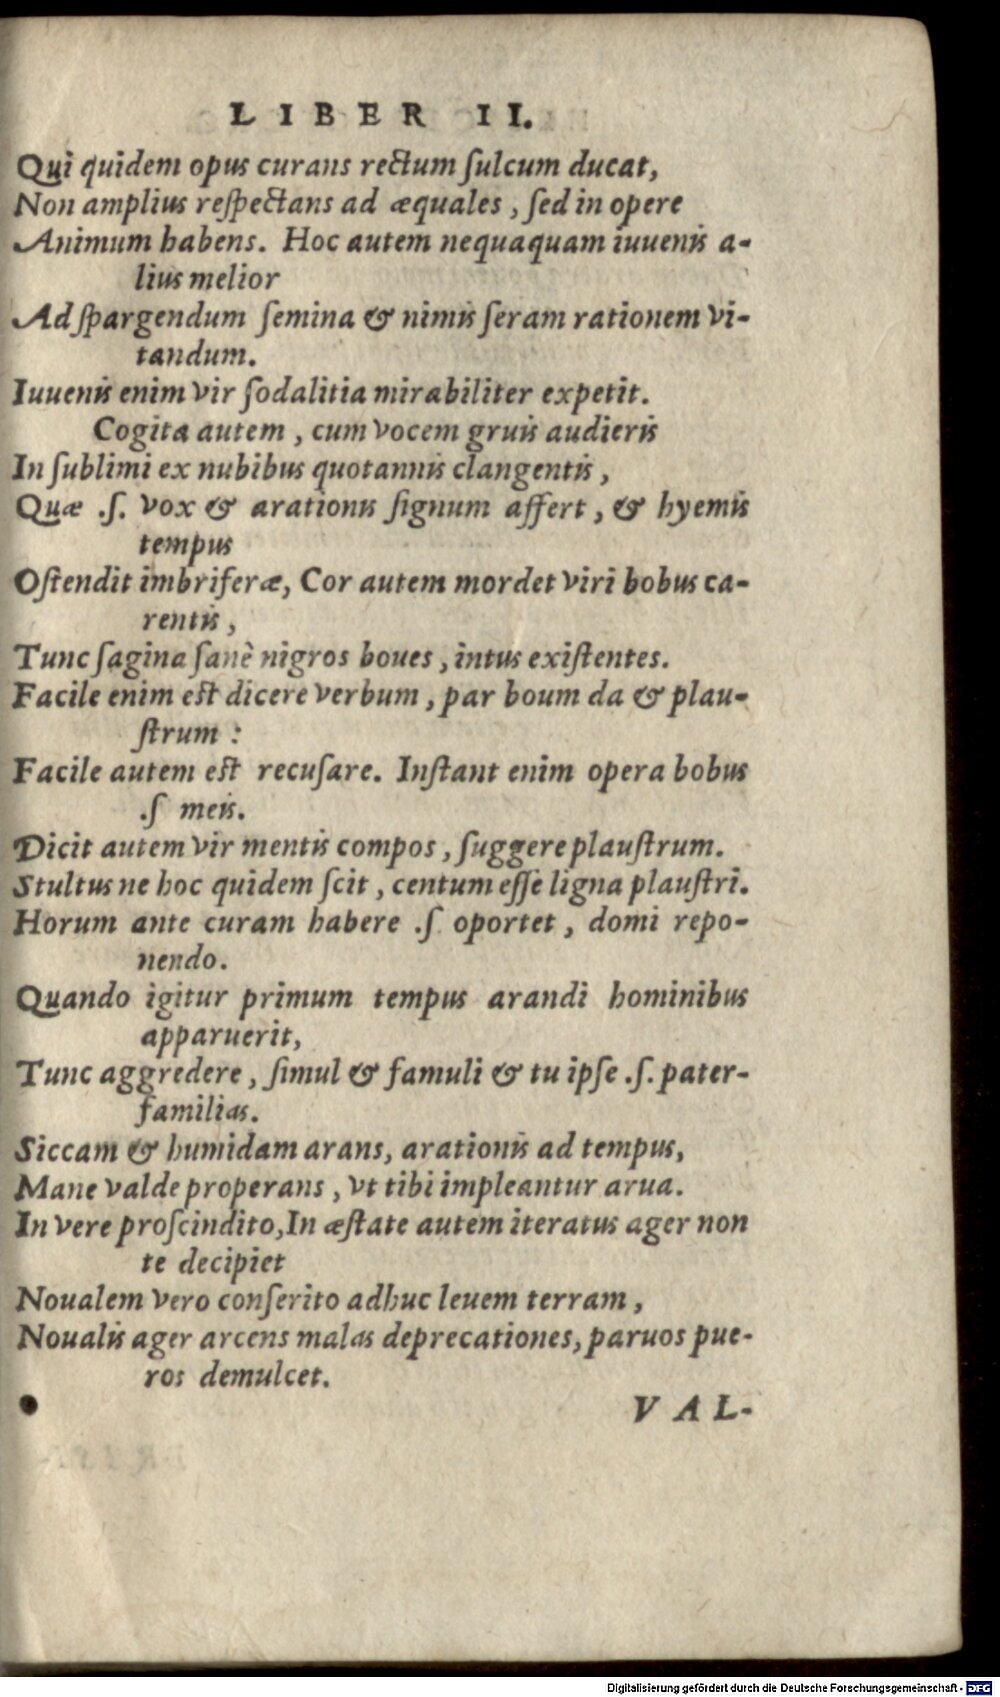 LIBER II.
Qui quidem opus curans rectum ſulcum ducat,
Non amplius reſpectans ad æquales, ſed in opere
Animum habens. Hoc autem nequaquam iuuenis a-
lius melior
Ad ſpargendum ſemina & nimis ſeram rationem vi-
tandum.
Iuuenis enim vir ſodalitia mirabiliter expetit.
Cogita autem, cum vocem gruis audieris
In ſublimi ex nubibus quotannis clangentis,
Quæ .ſ. vox & arationis ſignum affert, & hyemis
tempus
Oſtendit imbriferæ, Cor autem mordet viri bobus ca-
rentis,
Tunc ſagina ſanè nigros boues, intus exiſtentes.
Facile enim eſt dicere verbum, par boum da & plau-
ſtrum:
Facile autem eſt recuſare. Inſtant enim opera bobus
.ſ meis.
Dicit autem vir mentis compos, ſuggere plauſtrum.
Stultus ne hoc quidem ſcit, centum eſſe ligna plauſtri.
Horum ante curam habere .ſ. oportet, domi repo-
nendo.
Quando igitur primum tempus arandi hominibus
apparuerit,
Tunc aggredere, ſimul & famuli & tu ipſe .ſ. pater-
familias.
Siccam & humidam arans, arationis ad tempus,
Mane valde properans, vt tibi impleantur arua.
In vere proſcindito, In æſtate autem iteratus ager non
te decipiet
Noualem vero conſerito adhuc leuem terram,
Noualis ager arcens malas deprecationes, paruos pue-
ros demulcet.
VAL-
Digitalisierung gefördert durch die Deutsche Forschungsgemeinschaft - DFG